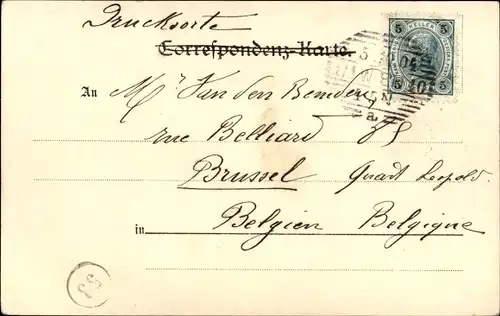 Drucksorte
Correspondenz-Karte.
5 HELLER 5
5 5
An Mr Van den Bemden
rue Belliard 85
Brussel Quart Leopold
in Belgien Belgique